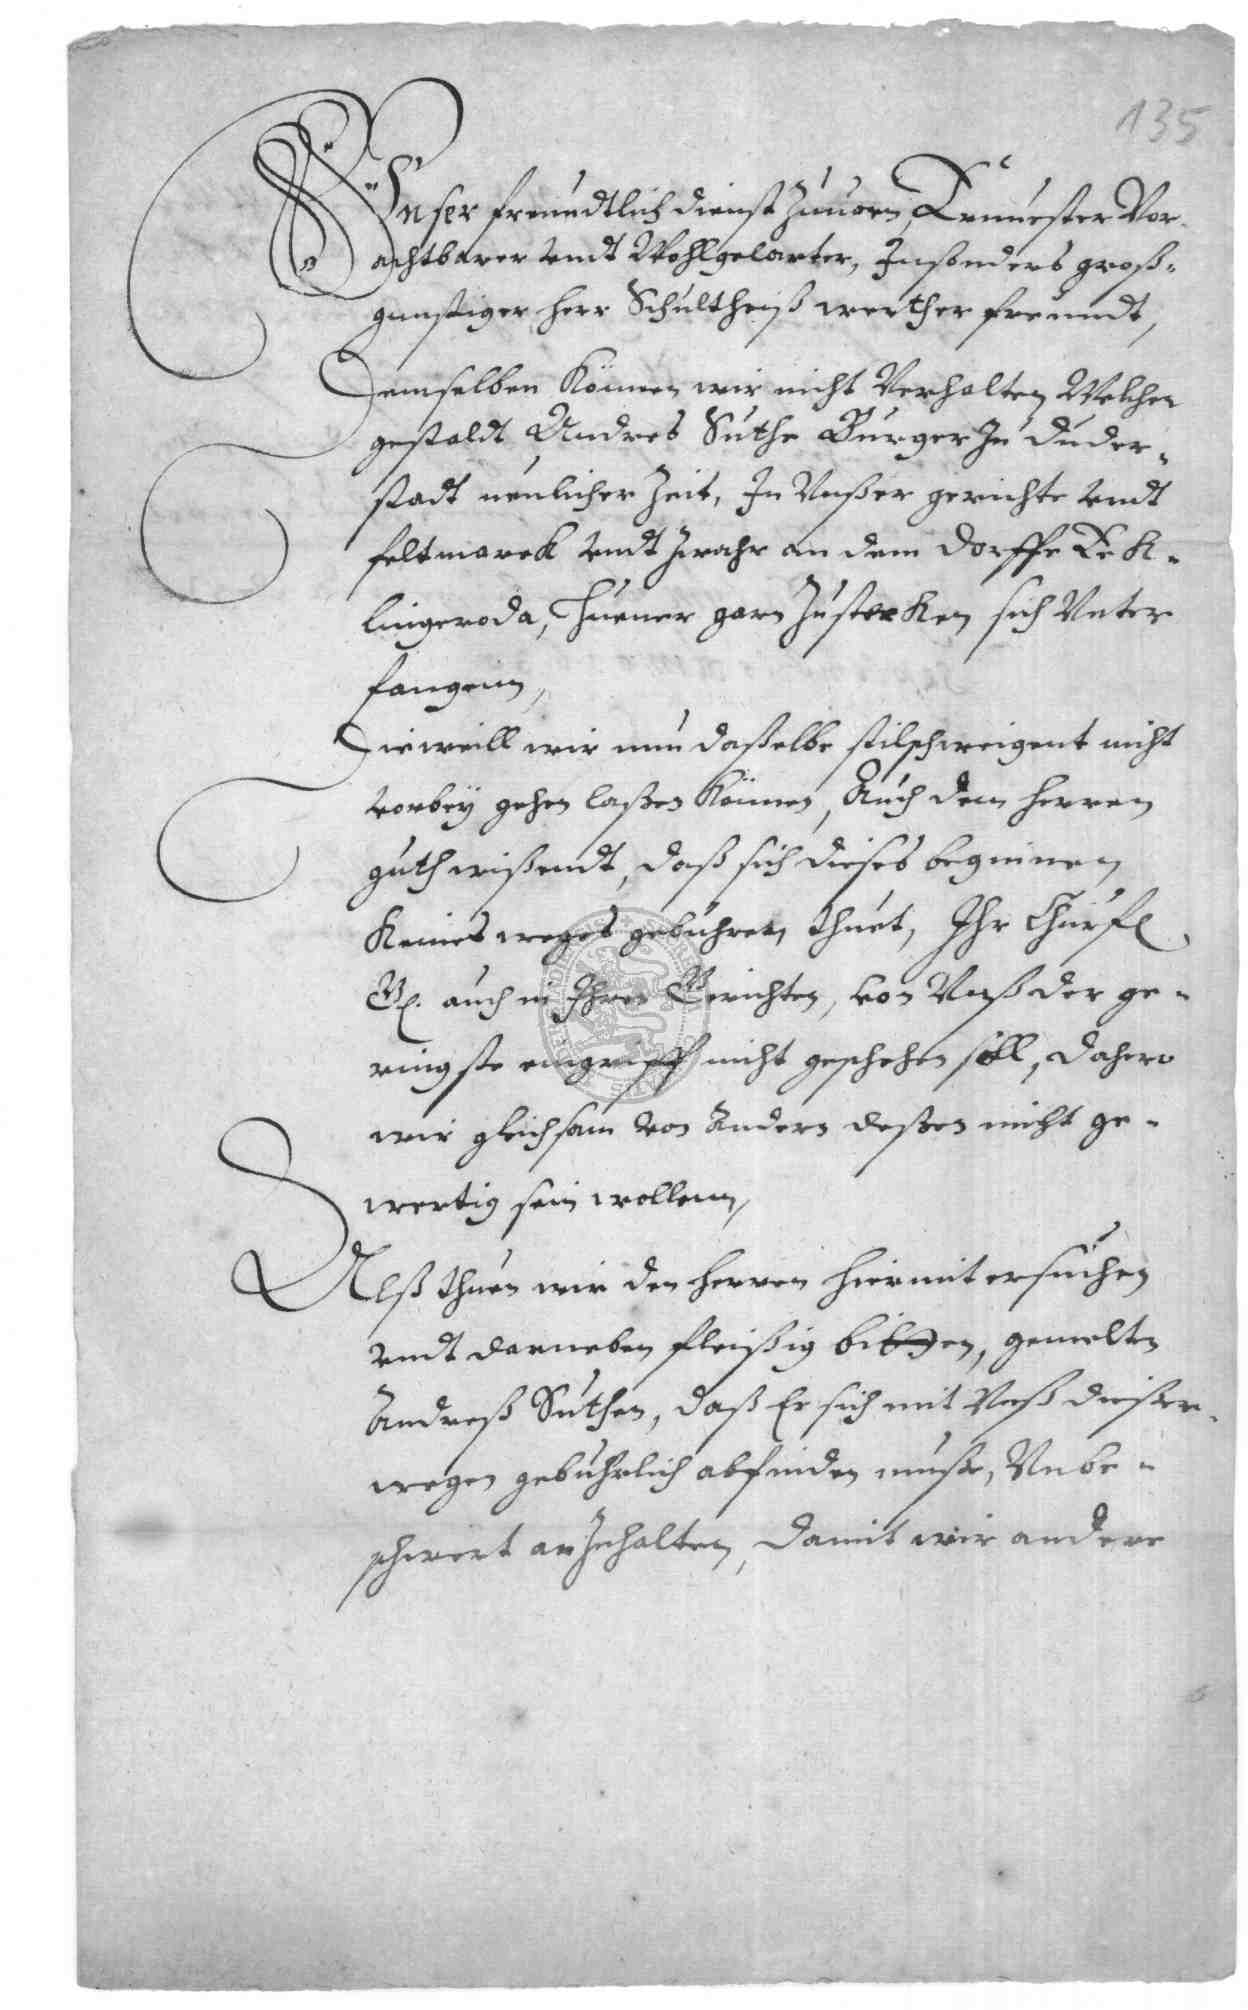 135
Vnser freundtlich dienst zuuorn, Ernuester Vor-
achtbarer vndt Wohlgelarter, Insonders groß-
gunstiger Herr Schultheiß werther freundt,
Demselben können wir nicht Verhalten Welcher
gestaldt Andres Suthe Burger zu Duder-
stadt neulicher Zeit, In Vnßer gerichte vndt
feltmarck vndt zwahr an dem dorffe Tek-
lingeroda, Huener garn zustecken sich Vnter
fangenn,
Dieweill wir nun daßelbe stilschweigent nicht
vorbey gehen laßen können, Auch dem Herren
guth wißendt, daß sich dieses beginnen
keines weges gebuhren thuet, Ihr Churfl.
Gl. auch in Ihren Gerichten, von Vnß der ge-
ringste eingriff nicht geschehen soll, dahero
wir gleichsam von Andern deßen nicht ge-
wertig sein wollenn,
Alß thuen wir den Herren hiermit ersuchen
vndt darneben fleißig bitten, gemelten
Andreß Suthen, daß Er sich mit Vnß dießer-
wegen gebuhrlich abfinden muße, Vnbe-
schwert anzuhalten, damit wir andere